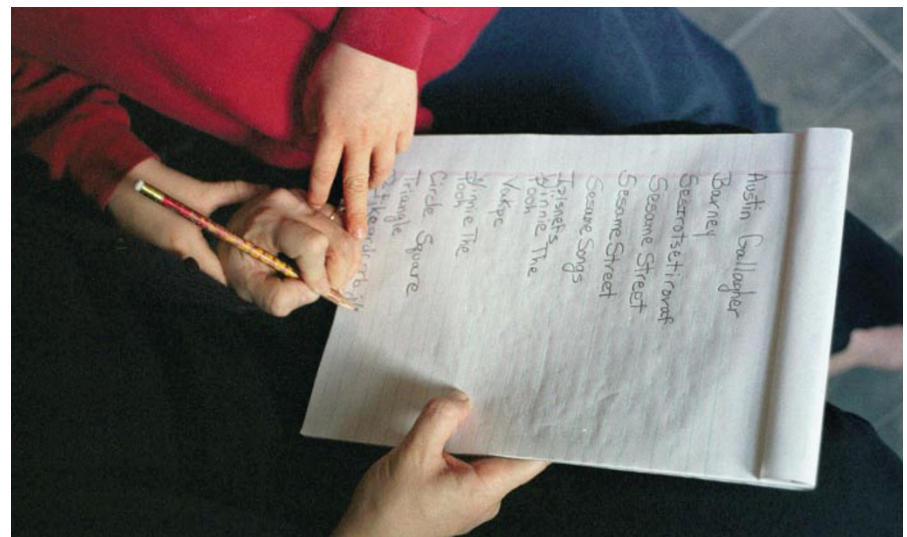 Austin Gallagher
Barney
Sesirotsetirovaf
Sesame Street
Sesame Street
Sesame Songs
Disney's
Winnie The
Pooh
Vukpe
Winnie The
Pooh
Circle Square
Triangle